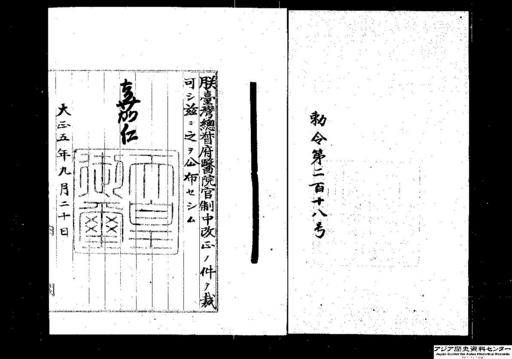 勅令第二百十八号
朕臺灣總督府醫院官制中改正ノ件ヲ裁
可シ茲ニ之ヲ公布セシム
嘉仁
天皇
御璽
大正五年九月二十日
アジア歴史資料センター
Japan Center for Asian Historical Records